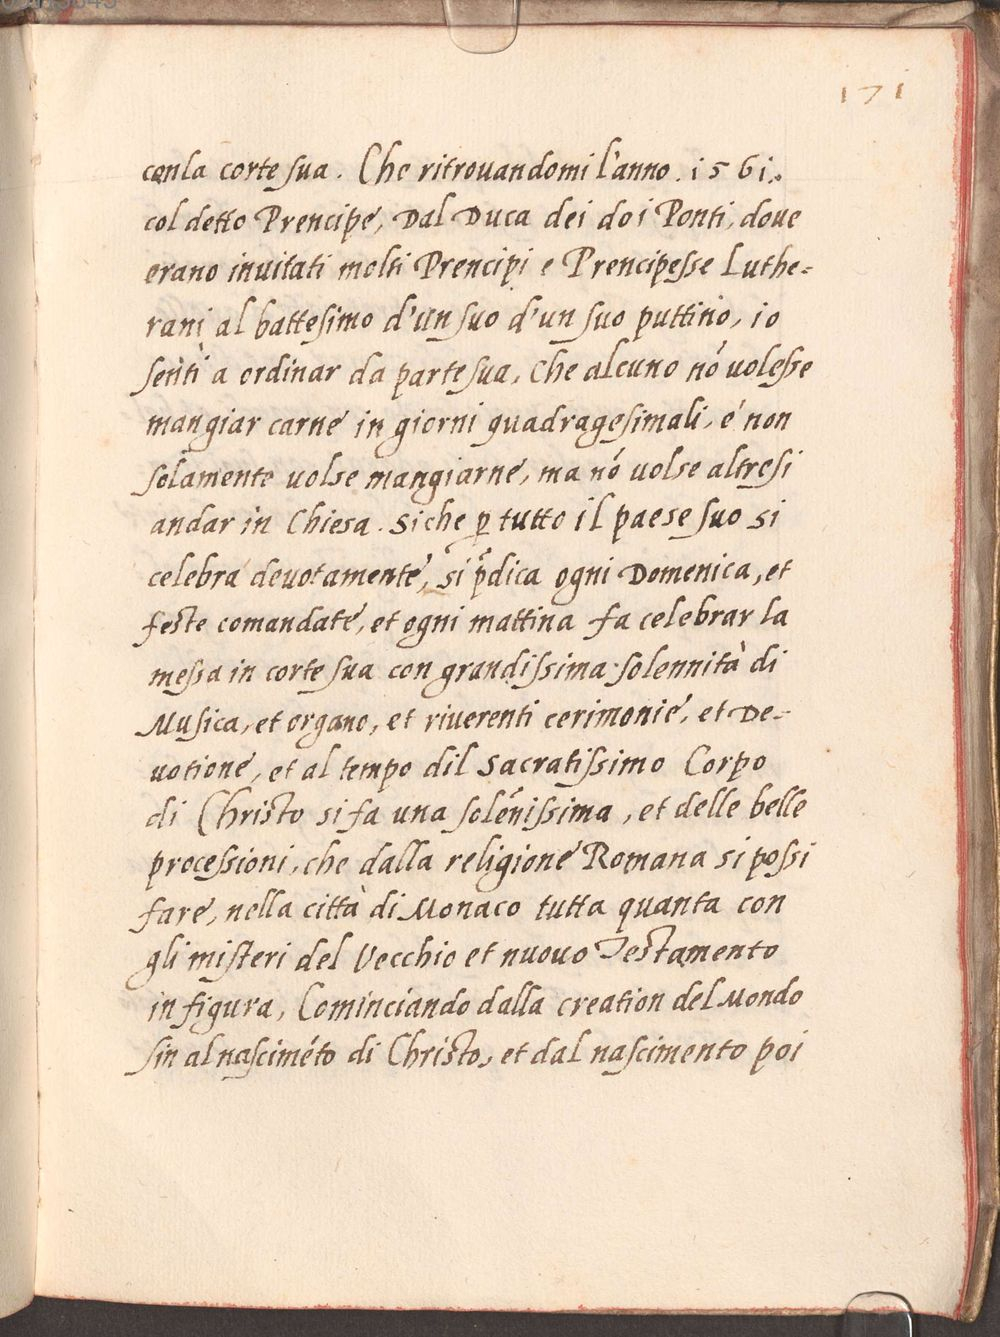 171
conla corte sua. Che ritrouandomi l'anno. 1561.
col detto Prencipe, Dal Duca dei doi Ponti, doue
erano inuitati molti Prencipi e Prencipesse Luthe-
rani al battesimo d'un suo d'un suo puttino, io
sẽti a ordinar da parte sua, Che alcuno nõ uolesse
mangiar carne in giorni quadragesimali, é non
solamente uolse mangiarne, ma nõ uolse altresi
andar in Chiesa. Siche ꝑ tutto il paese suo si
celebra deuotamente, si p̃dica ogni Domenica, et
feste comandate, et ogni mattina fa celebrar la
messa in corte sua con grandissima solennità di
Musica, et organo, et riuerenti cerimonie, et De-
uotione, et al tempo dil Sacratissimo Corpo
di Christo si fa una solẽnissima, et delle belle
processioni, che dalla religione Romana si possi
fare, nella città di Monaco tutta quanta con
gli misteri del Vecchio et nuouo Testamento
in figura, Cominciando dalla creation del Mondo
sin al nascimẽto di Christo, et dal nascimento poi